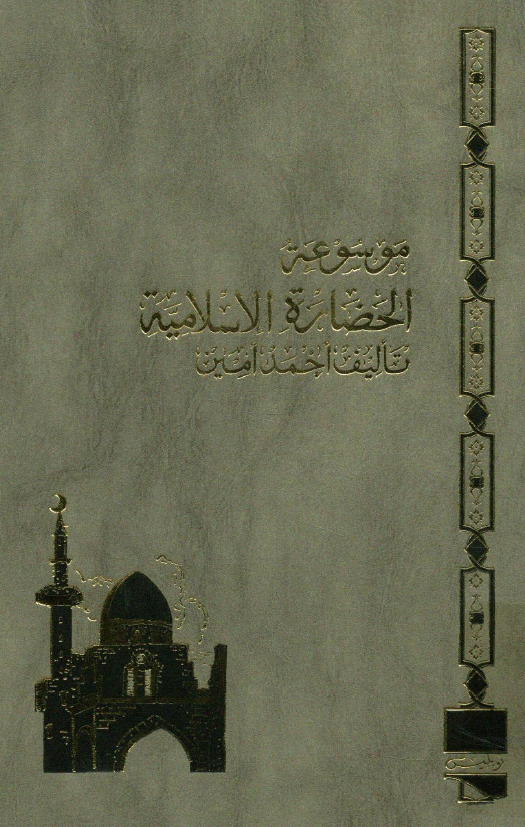 موسوعة
الحضارة الاسلامية
تأليف أحمد أمين
نوبليس